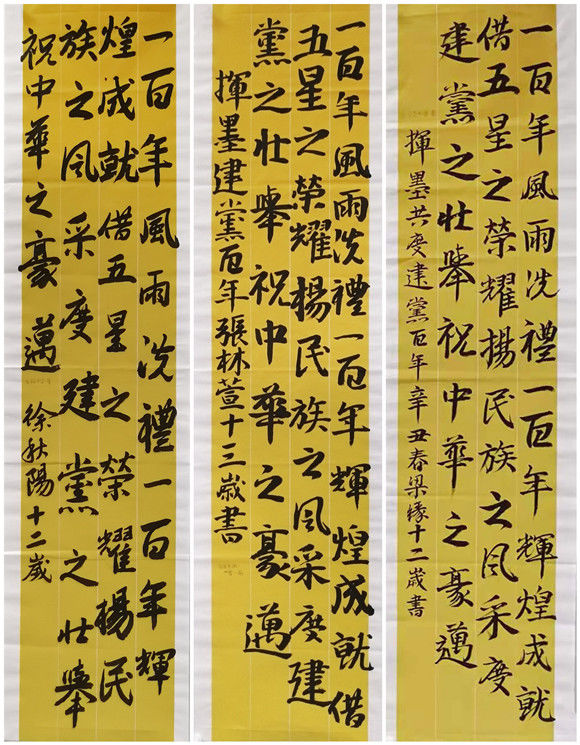 一百年風雨洗禮一百年輝煌成就
借五星之榮耀揚民族之风采度
建黨之壮舉祝中華之豪邁
揮墨共度建黨百年辛丑春梁缘十二歲書
一百年風雨洗禮一百年輝煌成就借
五星之榮耀揚民族之风采度建
黨之壮舉祝中華之豪邁
揮墨建黨百年張林萱十三歲書
一百年風雨洗禮一百年輝
煌成就借五星之榮耀揚民
族之风采度建黨之壮舉
祝中華之豪邁 徐秋陽十二歲